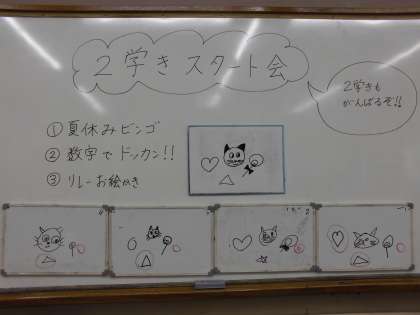 2学き スタート会
2学きも
がんばるぞ!!
① 夏休みビンゴ
② 数字でドッカン!!
③ リレーお絵かき